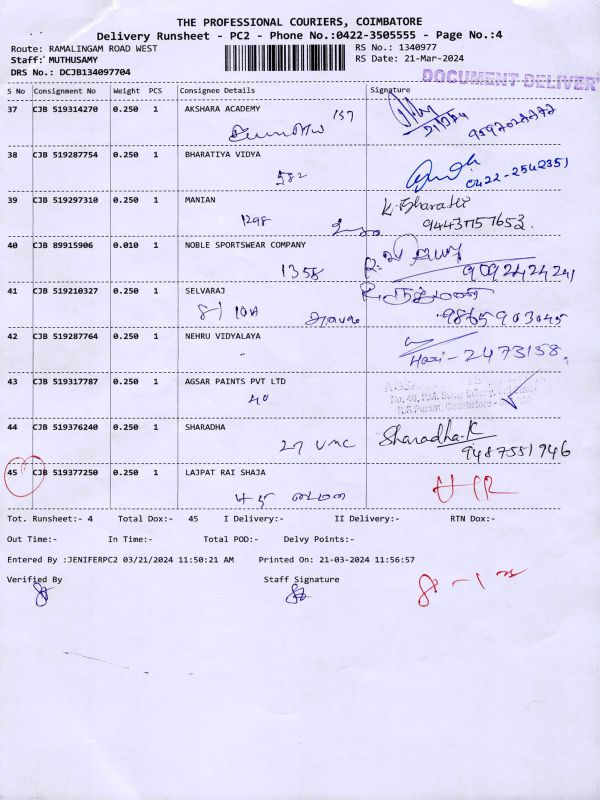 THE PROFESSIONAL COURIERS, COIMBATORE
Delivery Runsheet - PC2 - Phone No.:0422-3505555 - Page No.:4
Route: RAMALINGAM ROAD WEST
RS No.: 1340977
Staff: MUTHUSAMY
RS Date: 21-Mar-2024
DRS No.: DCJB134097704
DOCUMENT DELIVER
S No Consignment No Weight PCS Consignee Details Signature
37 CJB 519314270 0.250 1 AKSHARA ACADEMY
137
38 CJB 519287754 0.250 1 BHARATIYA VIDYA
582
0422-2542351
39 CJB 519297310 0.250 1 MANIAN
K. Bharathi
1298
9443757652
40 CJB 89915906 0.010 1 NOBLE SPORTSWEAR COMPANY
1358
9092424241
41 CJB 519210327 0.250 1 SELVARAJ
81 10A
9865903045
42 CJB 519287764 0.250 1 NEHRU VIDYALAYA
Hari - 2473158
43 CJB 519317787 0.250 1 AGSAR PAINTS PVT LTD
40
44 CJB 519376240 0.250 1 SHARADHA
Sharadha.K
27 UMC
9487551946
45 CJB 519377250 0.250 1 LAJPAT RAI SHAJA
Tot. Runsheet:- 4 Total Dox:- 45 I Delivery:- II Delivery:- RTN Dox:-
Out Time:- In Time:- Total POD:- Delvy Points:-
Entered By :JENIFERPC2 03/21/2024 11:50:21 AM Printed On: 21-03-2024 11:56:57
Verified By Staff Signature